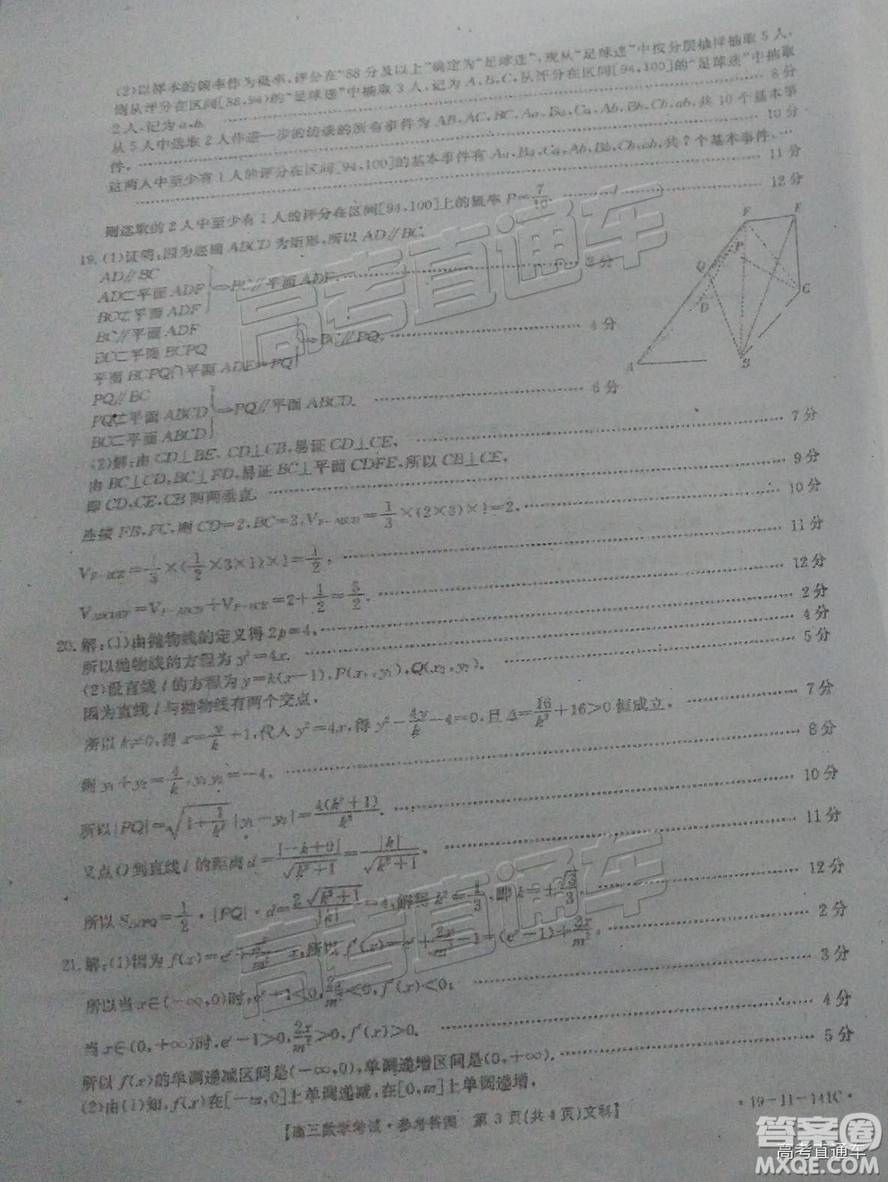 (2)以样本的频率作为概率,评分在“88分及以上”确定为“足球迷”,现从“足球迷”中按分层抽样抽取5人,
则从评分在区间[88,94)的“足球迷”中抽取3人,记为A,B,C,从评分在区间[94,100]的“足球迷”中抽取
2人,记为a,b. 8分
从5人中选取2人作进一步的访谈的所有事件为AB,AC,BC,Aa,Ba,Ca,Ab,Bb,Cb,ab,共10个基本事
件. 10分
这两人中至少有1人的评分在区间[94,100]的基本事件有Aa,Ba,Ca,Ab,Bb,Cb,ab,共7个基本事件. 11分
则选取的2人中至少有1人的评分在区间[94,100]上的概率P=7/10. 12分
19.(1)证明:因为底面ABCD为矩形,所以AD∥BC.
AD∥BC
AD⊂平面ADF
BC⊄平面ADF
⇒BC∥平面ADF. 2分
BC∥平面ADF
BC⊂平面BCPQ
平面BCPQ∩平面ADF=PQ
⇒BC∥PQ. 4分
PQ∥BC
PQ⊄平面ABCD
BC⊂平面ABCD
⇒PQ∥平面ABCD. 6分
F E
P
Q
D
C
A B
(2)解:由CD⊥BE,CD⊥CB,易证CD⊥CE, 7分
由BC⊥CD,BC⊥FD,易证BC⊥平面CDFE,所以CB⊥CE,
即CD,CE,CB两两垂直. 9分
连接FB,FC,则CD=2,BC=3,V_{F-ABCD}=1/3×(2×3)×1=2, 10分
V_{F-BCE}=1/3×(1/2×3×1)×1=1/2, 11分
V_{ABCDEF}=V_{F-ABCD}+V_{F-BCE}=2+1/2=5/2. 12分
20.解:(1)由抛物线的定义得2p=4, 2分
所以抛物线的方程为y²=4x. 4分
(2)设直线l的方程为y=k(x-1),P(x₁,y₁),Q(x₂,y₂). 5分
因为直线l与抛物线有两个交点,
所以k≠0,得x=y/k+1,代入y²=4x,得y²-4y/k-4=0,且Δ=16/k²+16>0恒成立. 7分
则y₁+y₂=4/k,y₁y₂=-4. 8分
所以|PQ|=√(1+1/k²)|y₁-y₂|=4(k²+1)/k². 10分
又点O到直线l的距离d=|-k+0|/√(k²+1)=|k|/√(k²+1), 11分
所以S_{△OPQ}=1/2·|PQ|·d=2√(k²+1)/|k|=4,解得k²=1/3,即k=±√3/3. 12分
21.解:(1)因为f(x)=eˣ+x²/m²-x,所以f′(x)=eˣ+2x/m²-1=(eˣ-1)+2x/m². 2分
所以当x∈(-∞,0)时,eˣ-1<0,2x/m²<0,f′(x)<0; 3分
当x∈(0,+∞)时,eˣ-1>0,2x/m²>0,f′(x)>0. 4分
所以f(x)的单调递减区间是(-∞,0),单调递增区间是(0,+∞). 5分
(2)由(1)知,f(x)在[-m,0]上单调递减,在[0,m]上单调递增,
【高三数学考试·参考答案 第3页(共4页)文科】 ·19-11-141C·
高考直通车
高考直通车
答案圈
MXQE.COM
高考直通车